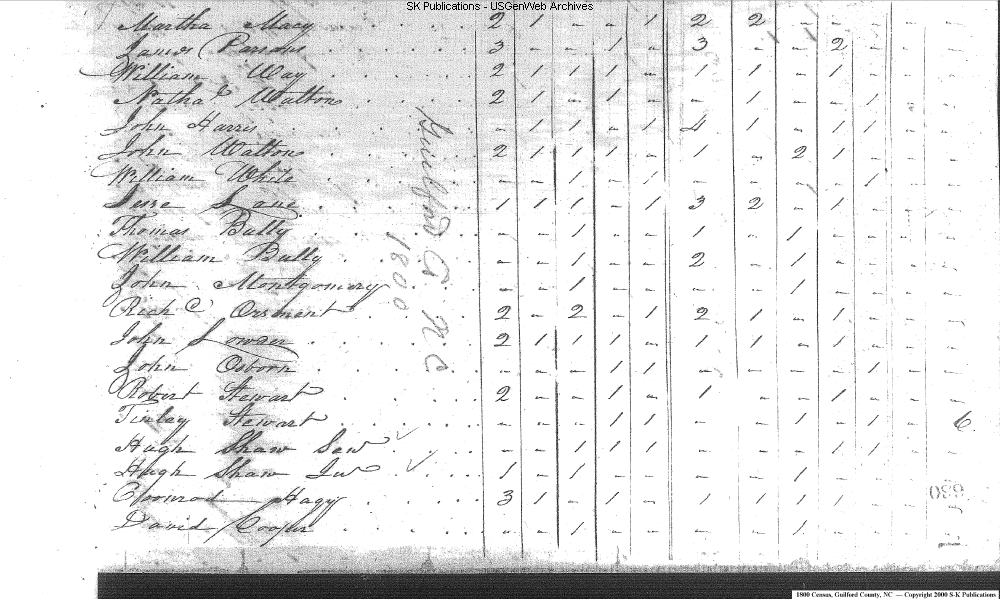 SK Publications - USGenWeb Archives
Martha Macy 2 1 - - 1 2 2
James Parsons 3 - - 1 - 3 - - 2 - -
William Way 2 1 1 1 - 1 1 - 1 - -
Nathal Walton 2 1 - 1 - - 1 - - 1 - -
John Harris - 1 1 - 1 4 1 - 1 1 - -
John Walton 2 1 1 1 - 1 - 2 1 - - -
William White - - 1 - 1 - - - - 1 - -
Lane 1 1 1 - 1 3 2 - 1 - - -
Thomas Bully - - 1 - - 1 - 1 - - - -
William Bully - - 1 - - 2 - 1 - - - -
John Montgomery - - 1 - - - - 1 - - - -
Richd Orsment 2 - 2 - 1 2 1 - 1 - - -
John Lowder 2 1 1 1 - 1 1 - 1 - - -
John Osborn - - - 1 1 - - - - 1 - -
Robert Stewart 2 - - 1 - 1 - - 1 - - -
Finley Stewart - - - 1 1 - - 1 - 1 - 6
Hugh Shaw Sen - - 1 1 1 - - - 1 1 - -
Hugh Shaw Jun 1 - 1 - - - - 1 - - - -
Hagy 3 1 - 1 - 1 1 1 1 - -
David Cooper - - 1 - - - - 1 - - -
Guilford Co N C
1800
690
1800 Census, Guilford County, NC — Copyright 2000 S-K Publications